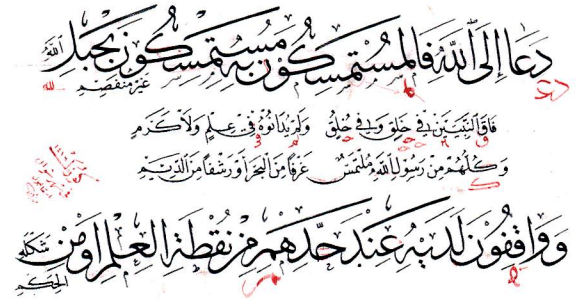 دَعَا إِلَى اللّٰهِ فَالْمُسْتَمْسِكُوْنَ بِهٖ مُسْتَمْسِكُوْنَ بِحَبْلٍ غَيْرِ مُنْفَصِمٍ
فَاقَ النَّبِيّٖنَ فِيْ خَلْقٍ وَفِيْ خُلُقٍ وَلَمْ يُدَانُوْهُ فِيْ عِلْمٍ وَلَا كَرَمٍ
وَكُلُّهُمْ مِنْ رَسُوْلِ اللّٰهِ مُلْتَمِسٌ غَرْفًا مِنَ الْبَحْرِ أَوْ رَشْفًا مِنَ الدِّيَمِ
وَوَاقِفُوْنَ لَدَيْهِ عِنْدَ حَدِّهِمْ مِنْ نُقْطَةِ الْعِلْمِ أَوْ مِنْ شَكْلَةِ الْحِكَمِ